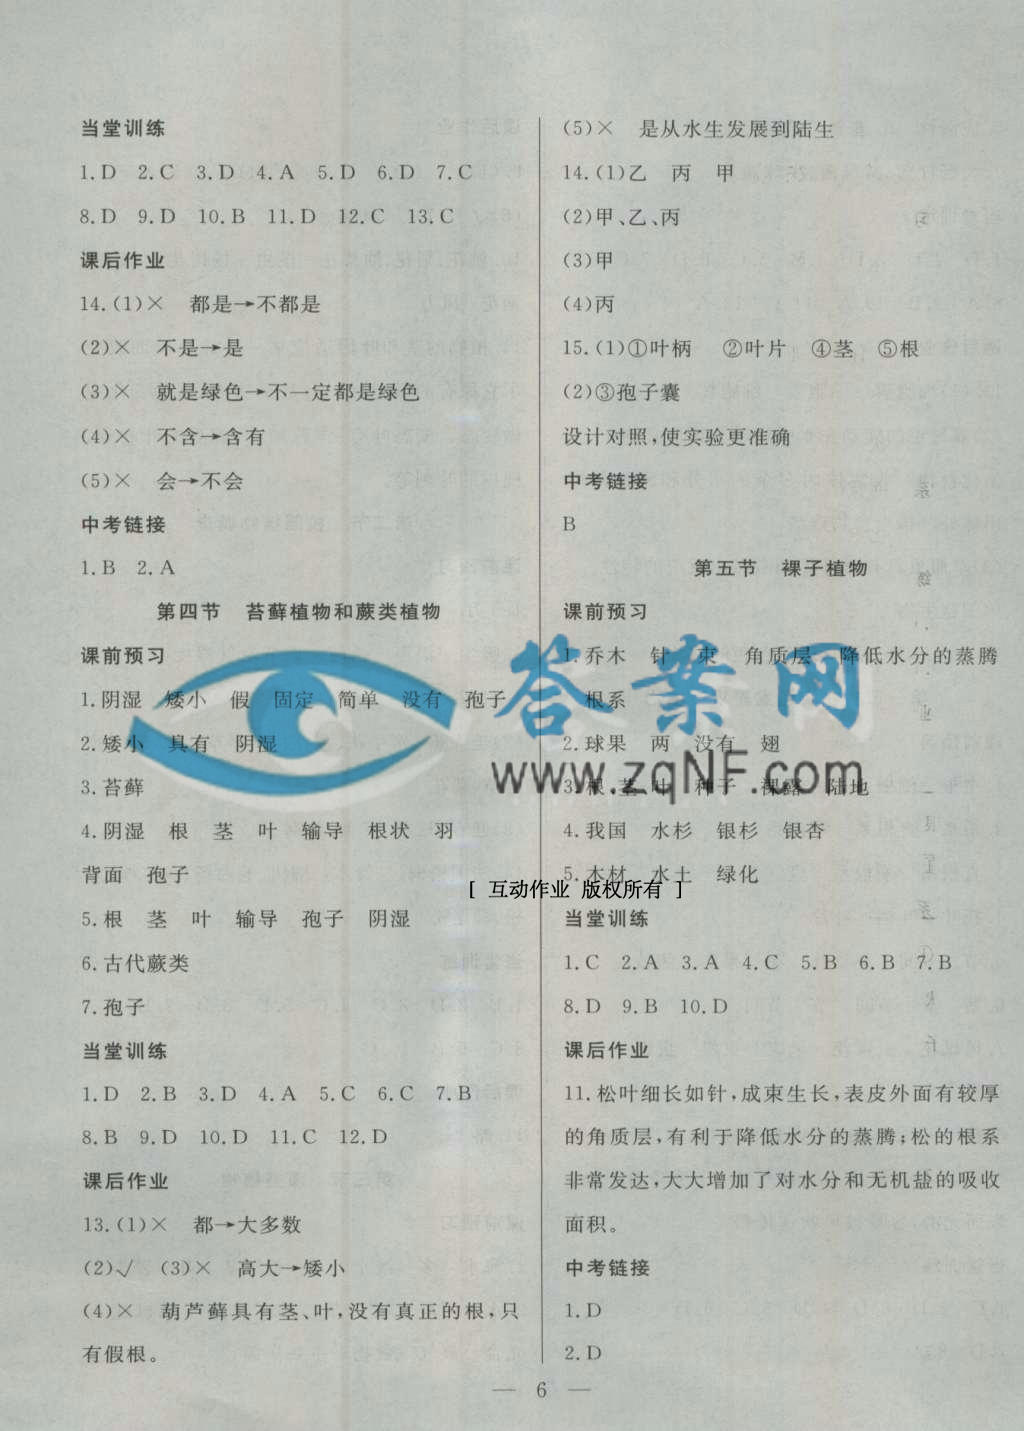 当堂训练
1.D 2.C 3.D 4.A 5.D 6.D 7.C
8.D 9.D 10.B 11.D 12.C 13.C
课后作业
14.(1)× 都是→不都是
(2)× 不是→是
(3)× 就是绿色→不一定都是绿色
(4)× 不含→含有
(5)× 会→不会
中考链接
1.B 2.A
第四节 苔藓植物和蕨类植物
课前预习
1.阴湿 矮小 假 固定 简单 没有 孢子
2.矮小 具有 阴湿
3.苔藓
4.阴湿 根 茎 叶 输导 根状 羽
背面 孢子
5.根 茎 叶 输导 孢子 阴湿
6.古代蕨类
7.孢子
当堂训练
1.D 2.B 3.D 4.A 5.C 6.D 7.B
8.B 9.D 10.D 11.C 12.D
课后作业
13.(1)× 都→大多数
(2)√ (3)× 高大→矮小
(4)× 葫芦藓具有茎、叶,没有真正的根,只
有假根。
(5)× 是从水生发展到陆生
14.(1)乙 丙 甲
(2)甲、乙、丙
(3)甲
(4)丙
15.(1)①叶柄 ②叶片 ④茎 ⑤根
(2)③孢子囊
设计对照,使实验更准确
中考链接
B
第五节 裸子植物
课前预习
1.乔木 针 束 角质层 降低水分的蒸腾
根系
2.球果 两 没有 翅
3.根 茎 叶 种子 裸露 陆地
4.我国 水杉 银杉 银杏
5.木材 水土 绿化
当堂训练
1.C 2.A 3.A 4.C 5.B 6.B 7.B
8.D 9.B 10.D
课后作业
11.松叶细长如针,成束生长,表皮外面有较厚
的角质层,有利于降低水分的蒸腾;松的根系
非常发达,大大增加了对水分和无机盐的吸收
面积。
中考链接
1.D
2.D
答案网
www.zqnf.com
[ 互动作业 版权所有 ]
6